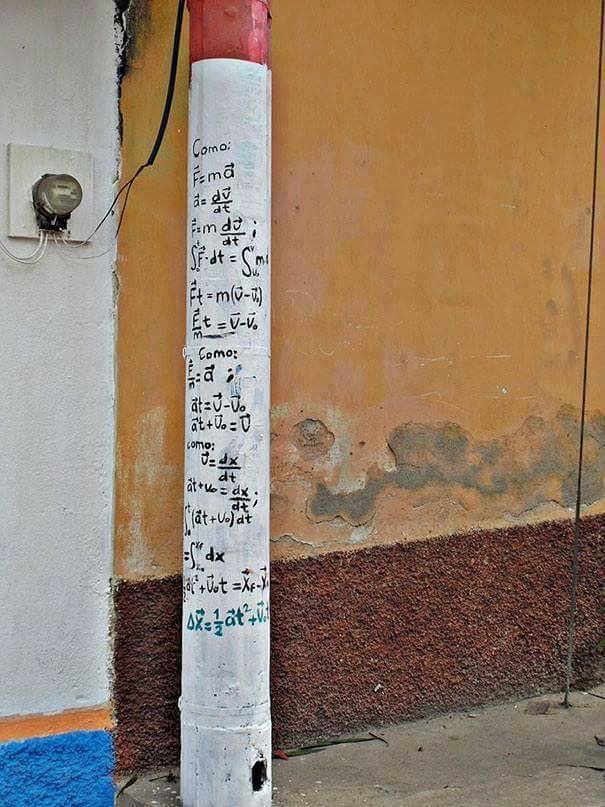 Como:
F⃗=ma⃗
a⃗= dv⃗/dt
F⃗=m dv⃗/dt ;
∫₀ᵗF⃗·dt = ∫ᵥ₀ᵛ m
F⃗t=m(v⃗-v⃗₀)
F⃗/m t = v⃗-v⃗₀
Como:
F⃗/m = a⃗ ;
a⃗t=v⃗-v⃗₀
a⃗t+v⃗₀=v⃗
como:
v⃗= dx/dt
a⃗t+v₀= dx/dt ;
∫₀ᵗ(a⃗t+v₀)dt
=∫ dx
½at²+v⃗₀t =x⃗F-x⃗
Δx⃗=½a⃗t²+v⃗₀t